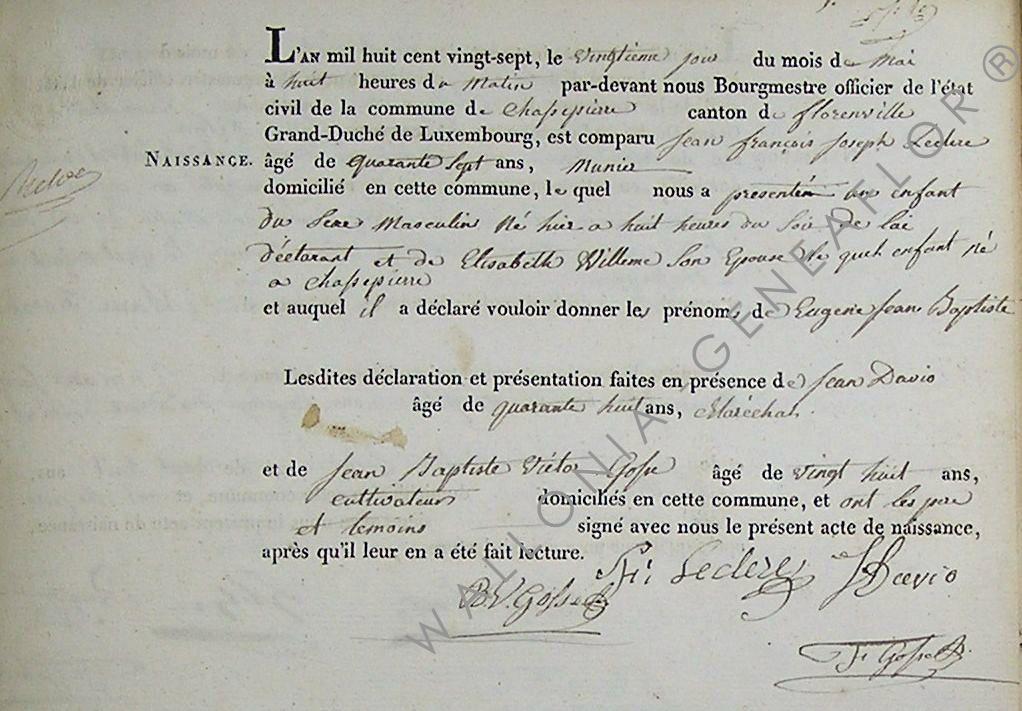 L'AN mil huit cent vingt-sept, le vingtieme jour du mois de Mai
à huit heures du Matin par-devant nous Bourgmestre officier de l'état
civil de la commune de Chassepierre canton de florenville
Grand-Duché de Luxembourg, est comparu Jean françois Joseph Leclere
NAISSANCE. âgé de quarante Sept ans, Munier
domicilié en cette commune, le quel nous a presenté un enfant
du Sexe Masculin Né hier a huit heures du Soir de lui
déclarant et de Elisabeth Willeme Son Epouse le quel enfant né
a Chassepierre
et auquel il a déclaré vouloir donner les prénoms de Eugene Jean Baptiste
Lesdites déclaration et présentation faites en présence de Jean Davio
âgé de quarante huit ans, Maréchal.
et de Jean Baptiste Victor Gosse âgé de vingt huit ans,
cultivateurs domiciliés en cette commune, et ont les pere
et temoins signé avec nous le présent acte de naissance,
après qu'il leur en a été fait lecture.
Leclere JDavio
B.V. Gosse
Gosse
WALLONIA GENEAFLOR ®